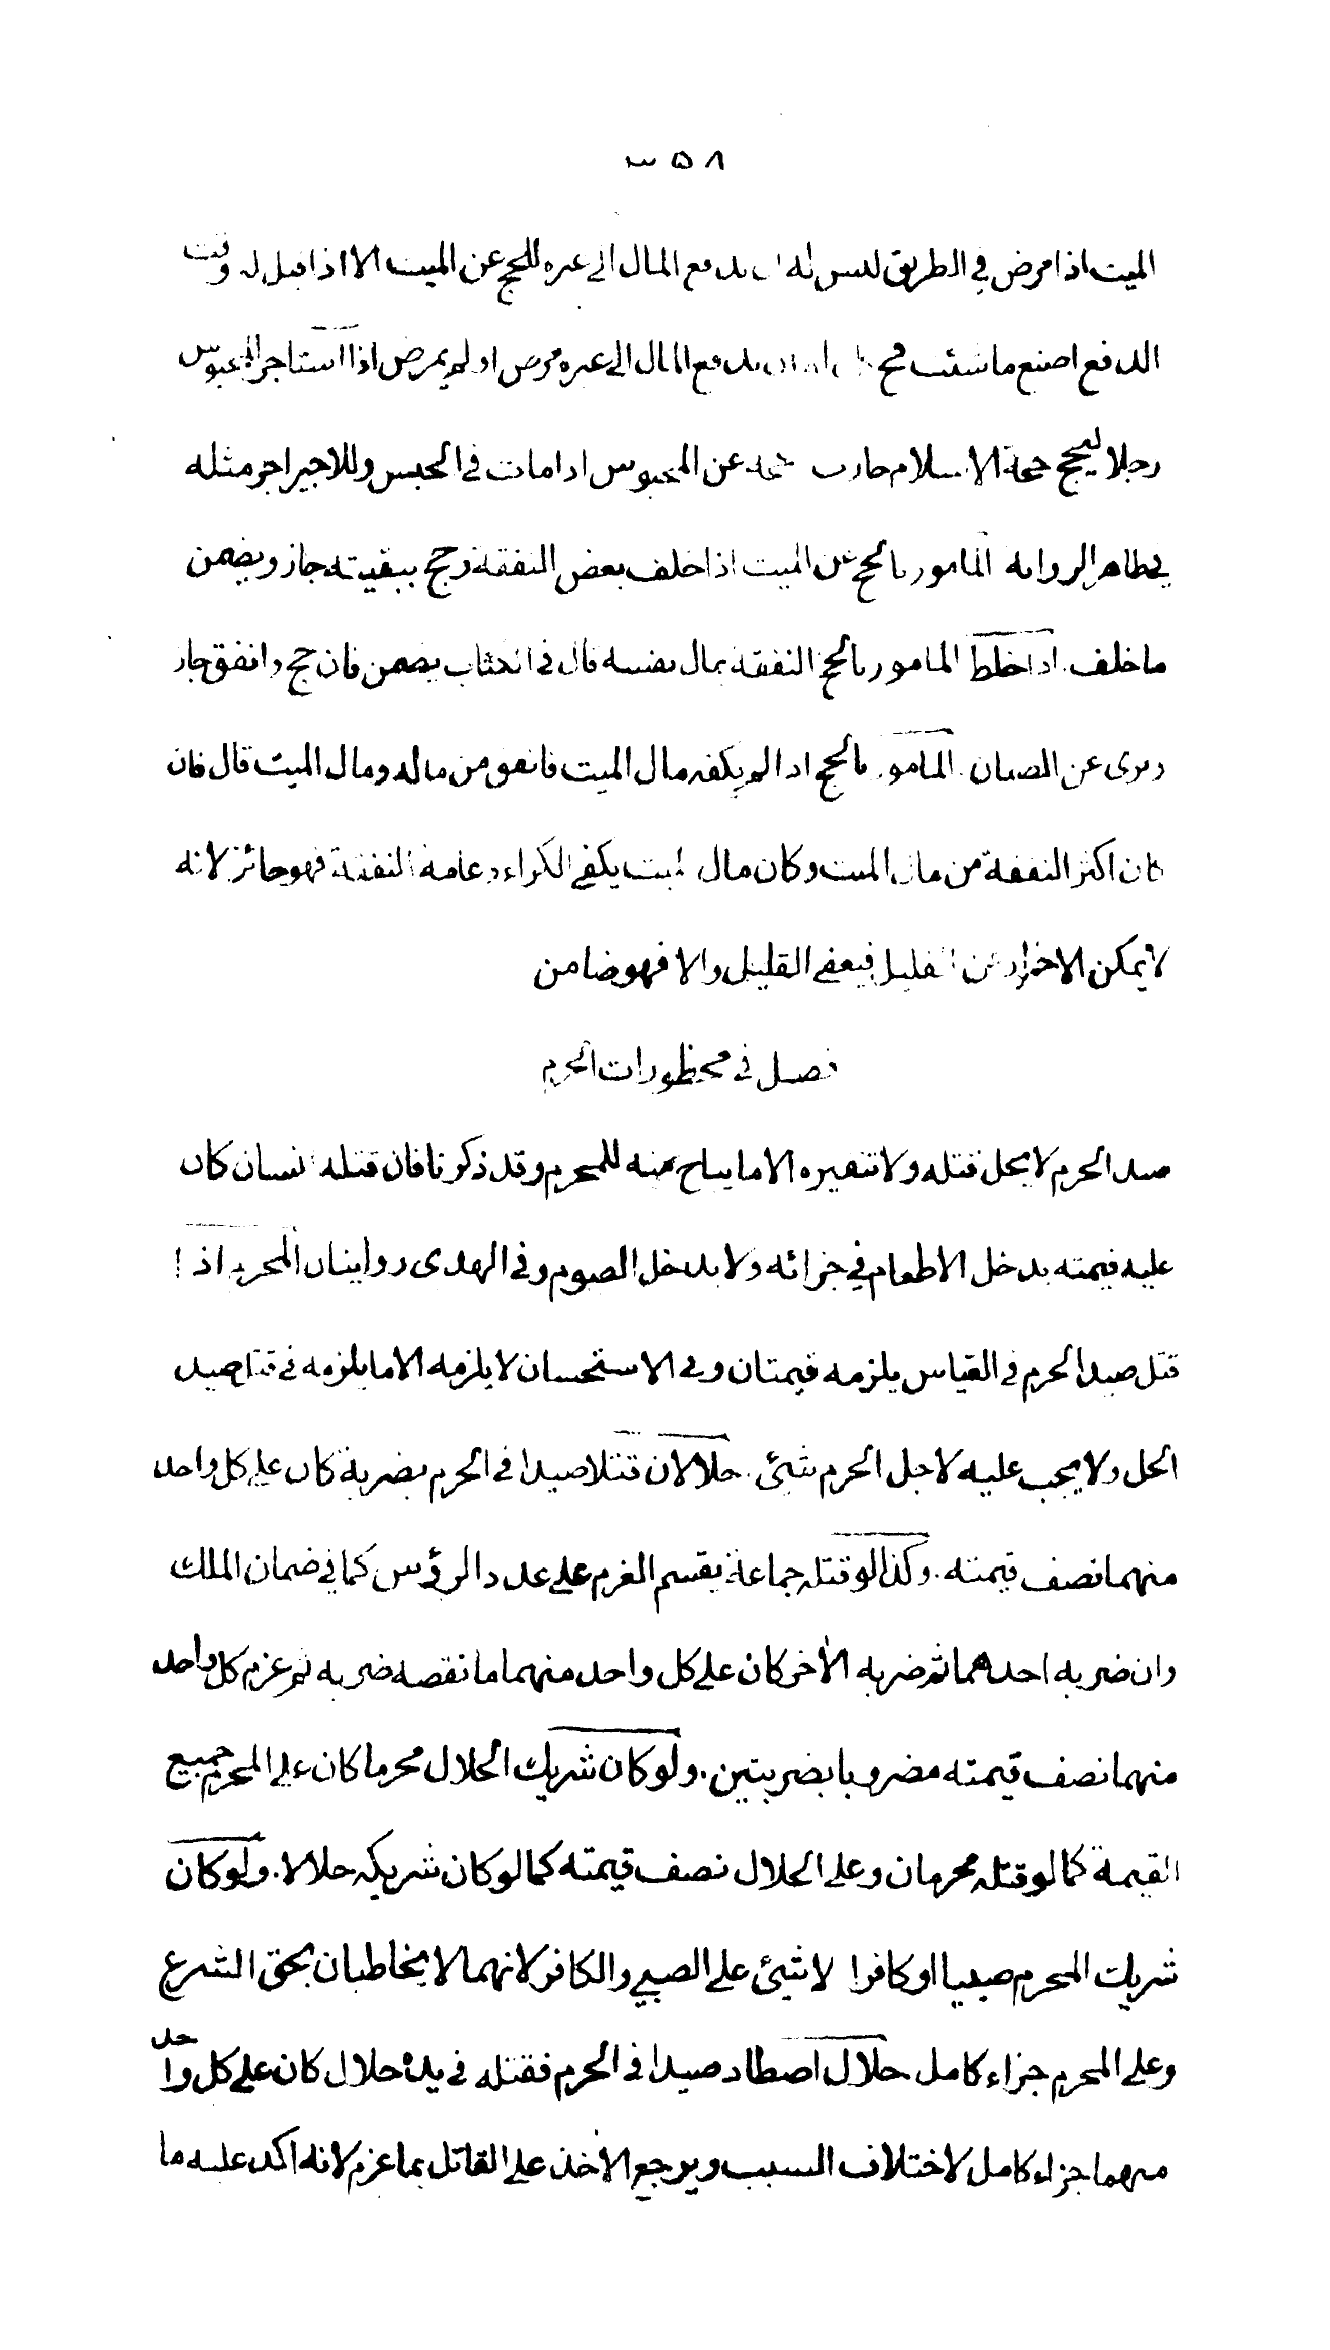 ٣٥٨
الميت اذا مرض في الطريق ليس له ان يدفع المال الى غيره للحج عن الميت الا اذا قيل له وقت
الدفع اصنع ما شئت فح له ان يدفع المال الى غيره مرض او لم يمرض اذا استاجر المحبوس
رجلا ليحج حجة الاسلام جازت حجته عن المحبوس اذا مات في الحبس وللاجير اجر مثله
في ظاهر الرواية المامور بالحج عن الميت اذا خلف بعض النفقة وحج ببقيته جاز ويضمن
ما خلف. اذا خلط المامور بالحج النفقة بمال نفسه قال في الكتاب يضمن فان حج وانفق جاز
وبرئ عن الضمان. المامور بالحج اذا لم يكفه مال الميت فانفق من ماله ومال الميت قال فان
كان اكثر النفقة من مال الميت وكان مال الميت يكفي الكراء وعامة النفقة فهو جائز لانه
لا يمكن الاحتراز عن القليل فيعفى القليل والا فهو ضامن
فصل في محظورات الحرم
صيد الحرم لا يحل قتله ولا تنفيره الا ما يباح منه للمحرم وقد ذكرنا فان قتله انسان كان
عليه قيمته يدخل الاطعام في جزائه ولا يدخل الصوم وفي الهدى روايتان المحرم اذا
قتل صيد الحرم في القياس يلزمه قيمتان وفي الاستحسان لا يلزمه الا ما يلزمه في قتل صيد
الحل ولا يجب عليه لاجل الحرم شئ. حلالان قتلا صيدا في الحرم بضربة كان على كل واحد
منهما نصف قيمته. وكذا لو قتله جماعة يقسم الغرم على عدد الرؤس كما في ضمان الملك
وان ضربه احدهما ثم ضربه الآخر كان على كل واحد منهما ما نقصه ضربه ثم غرم كل واحد
منهما نصف قيمته مضروبا بضربتين. ولو كان شريك الحلال محرما كان على المحرم جميع
القيمة كما لو قتله محرمان وعلى الحلال نصف قيمته كما لو كان شريكه حلالا. ولو كان
شريك المحرم صبيا او كافرا لا شئ على الصبي والكافر لانهما لا يخاطبان بحق الشرع
وعلى المحرم جزاء كامل حلال اصطاد صيدا في الحرم فقتله في يده حلال كان على كل واحد
منهما جزاء كامل لاختلاف السبب ويرجع الآخذ على القاتل بما غرم لانه اكد عليه ما